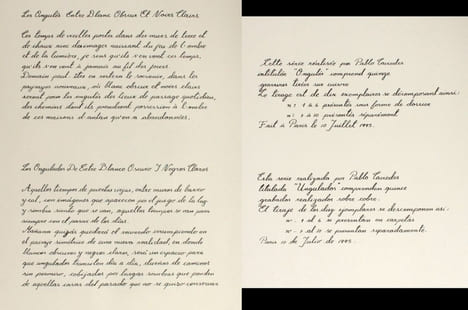 Les Ongulés Entre Blanc Obscur Et Noirs Clairs
Ces temps de vieilles portes dans des murs de terre et
de chaux avec des images naissant du jeu de l'ombre
et de la lumière, je sens qu'ils s'en vont ces temps,
qu'ils s'en vont à jamais au fil des jours
Demain peut être en sortira le souvenir, dans les
où blanc obscur et noirs clairs
seront pour les ongulés des lieux de passage quotidien,
des chemins dont ils
de ces maisons d'antan qu'on a abandonnées.
Los Ungulados De Entre Blanco Oscuro Y Negros Claros
Aquellos tiempos de puertas viejas, entre muros de barro
y cal, con imágenes que aparecen por el juego de la luz
y sombra siendo que se van, aquellos tiempos se van para
siempre con el pasar de los días.
Mañana quizás quedará el recuerdo irrumpiendo en
el paisaje de una nueva realidad, en donde
blancos obscuros y negros claros, será un espacio para
que ungulados día a día, dueños de caminos
sin permiso, cobijados por largas sombras que penden
de aquellas casas del pasado que no se quiso construir
Cette série réalisée par Pablo
intitulée "Ongulés" comprend quinze
gravures sur cuivre
Le tirage est de dix exemplaires se décomposant ainsi:
n° 1 à 6 présentés sous forme de
n° à 10 présentés séparément
Fait à Paris le 10 Juillet
Esta serie realizada por Pablo
titulada "Ungulados" comprenden quince
grabados realizados sobre cobre.
El tiraje de los diez ejemplares se descomponen así:
n°- 1 al 6 se presentan en carpetas
n°- al 10 se presentan separadamente.
Paris 10 de Julio de